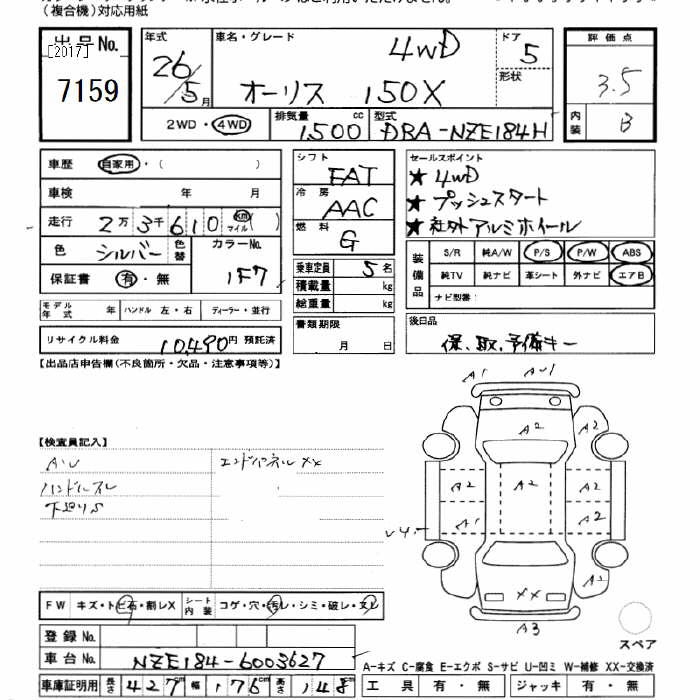 (複合機)対応用紙
出品No.
[2017]
7159
年式 26/5月
車名・グレード 4WD
オーリス 150X
ドア 5
形状
2WD・4WD
排気量 1500 cc
型式 DBA-NZE184H
評価点 3.5
内装 B
車歴 自家用・( )
車検 年 月
走行 2万3千610 km マイル( )
色 シルバー 色替 カラーNo. 1F7
保証書 有・無
モデル年式 年 ハンドル 左・右 ディーラー・並行
リサイクル料金 10,490円 預託済
シフト FAT
冷房 AAC
燃料 G
乗車定員 5名
積載量 kg
総重量 kg
書類期限
月 日
セールスポイント
★ 4WD
★ プッシュスタート
★ 社外アルミホイール
装備品
S/R 純A/W P/S P/W ABS
純TV 純ナビ 革シート 外ナビ エアB
ナビ型番:
後日品
保、取、予備キー
【出品店申告欄(不良箇所・欠品・注意事項等)】
【検査員記入】
ハンドルスレ
下廻りS
エンドパネルXX
A1
A2
A2 A2 A2
A1 A2
XX
A3
FW キズ・トビ石・割レX
シート内装 コゲ・穴・汚レ・シミ・破レ・スレ
登録No.
車台No. NZE184-6003627
車庫証明用 長さ 427 幅 176 高さ 148
スペア
A-キズ C-腐食 E-エクボ S-サビ U-凹ミ W-補修 XX-交換済
工具 有・無 ジャッキ 有・無